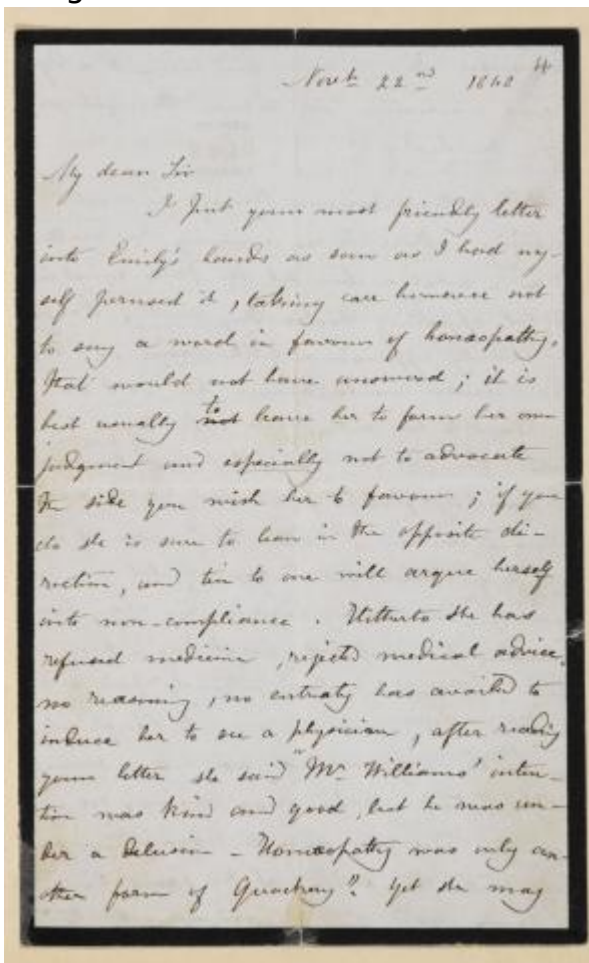 Novb. 22nd 1848 4
My dear Sir
I put your most friendly letter
into Emily's hands as soon as I had my-
self perused it, taking care however not
to say a word in favour of homœopathy,
that would not have answered; it is
best usually to leave her to form her own
judgment and especially not to advocate
the side you wish her to favour; if you
do she is sure to lean in the opposite di-
rection, and ten to one will argue herself
into non-compliance. Hitherto she has
refused medicine, rejected medical advice,
no reasoning, no entreaty has availed to
induce her to see a physician, after reading
your letter she said "Mr Williams' inten-
tion was kind and good, but he was un-
der a delusion – Homœopathy was only an-
other form of Quackery". Yet she may